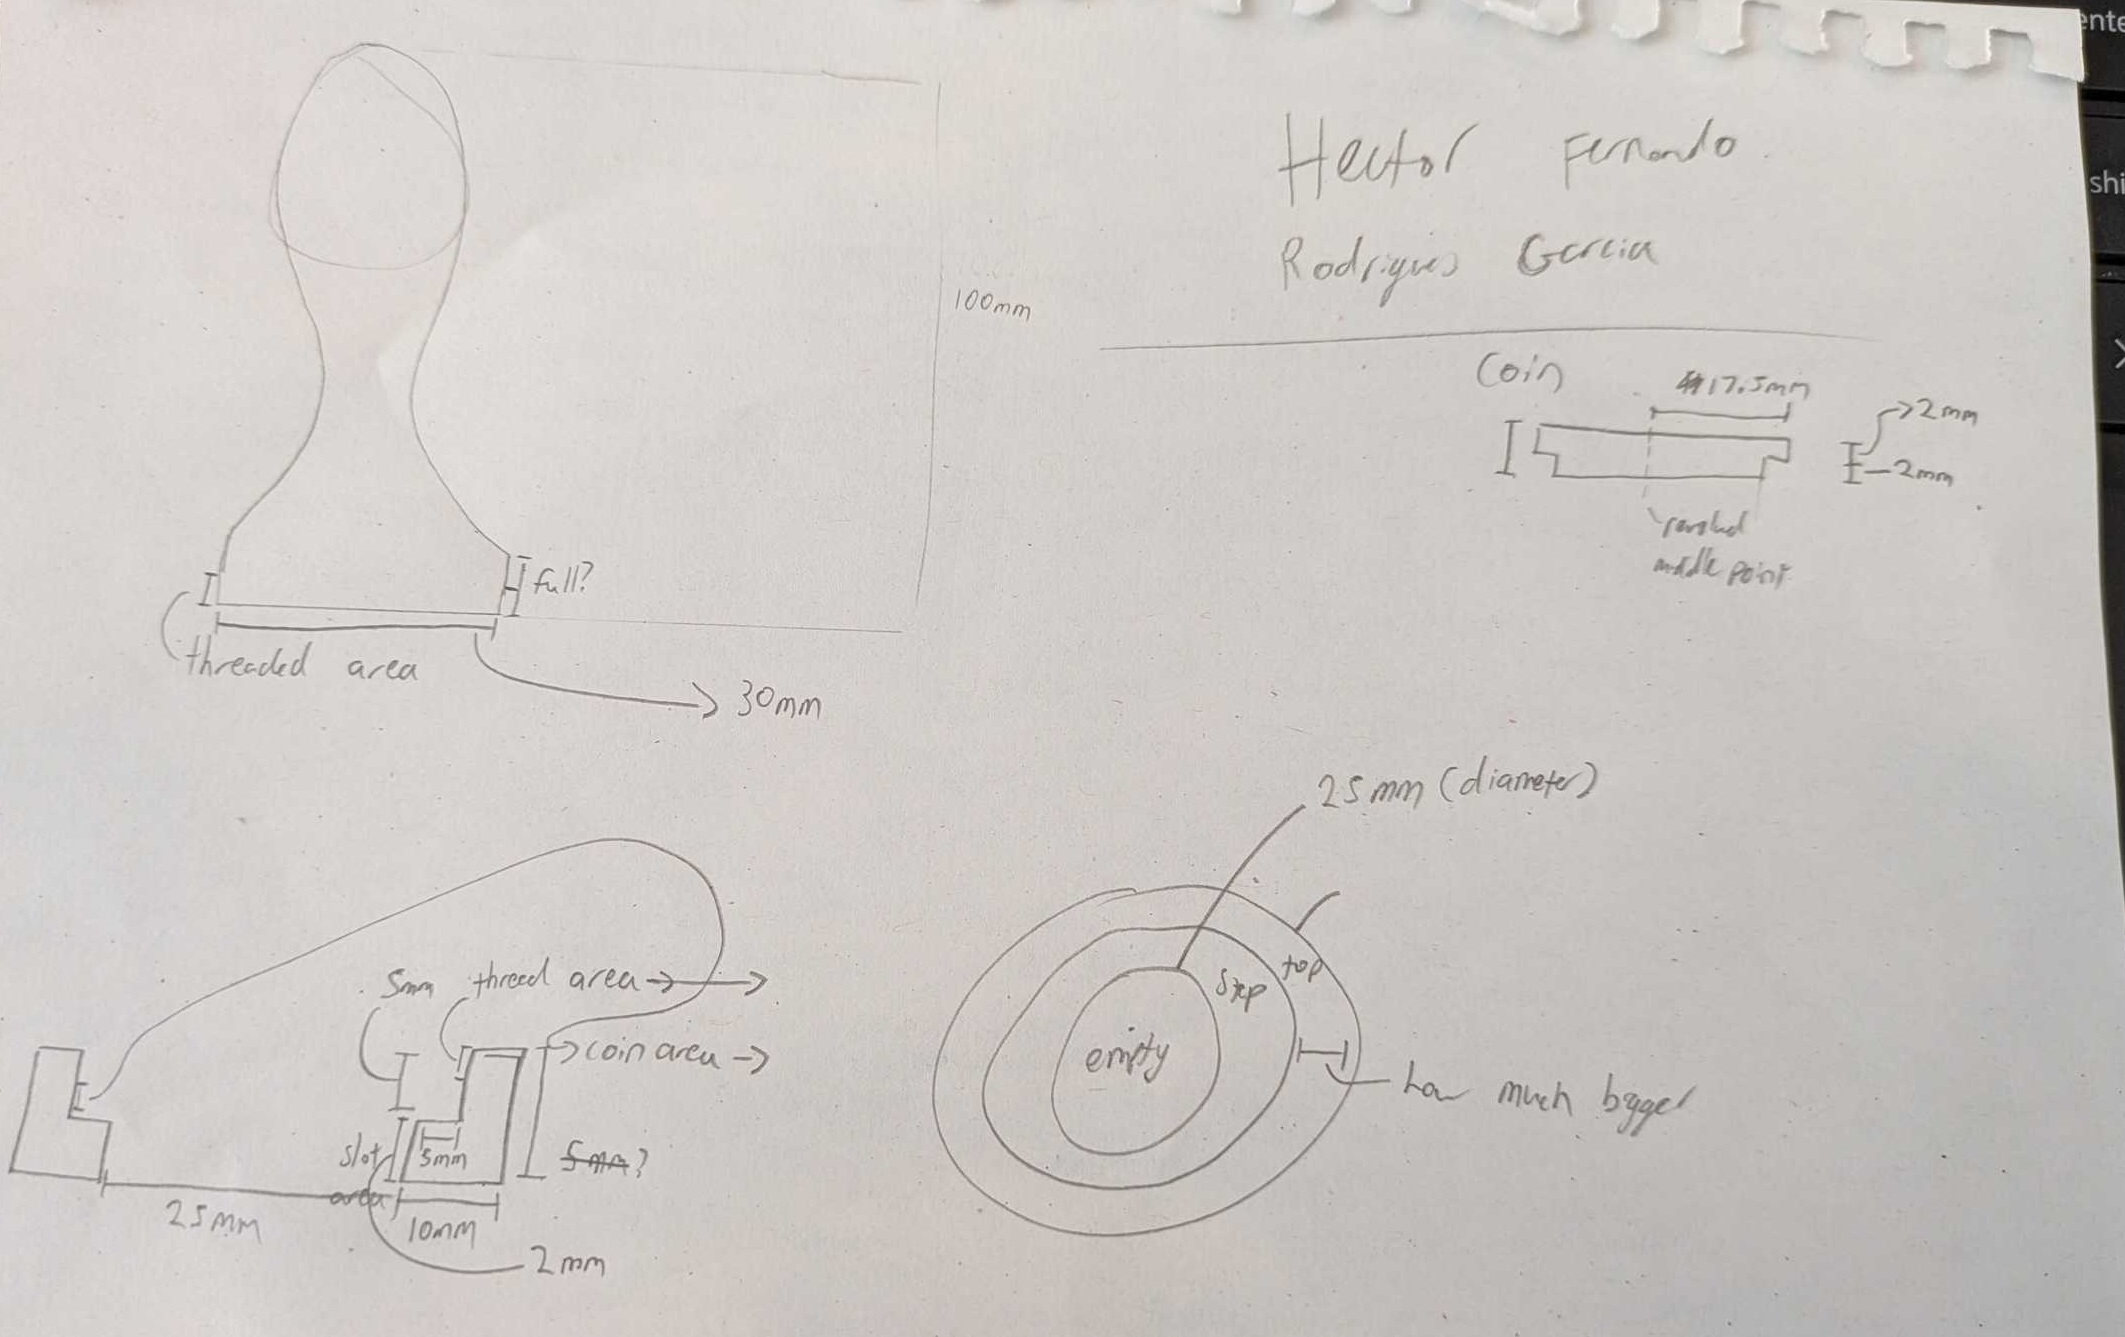 Hector Fernando
Rodrigues Garcia
100mm
Coin
17.5mm
2mm
2mm
middle point
full?
threaded area
30mm
25mm (diameter)
5mm
thread area
coin area
step
top
empty
how much bigger
slot
area
5mm
5mm?
25mm
10mm
2mm
ente
shi